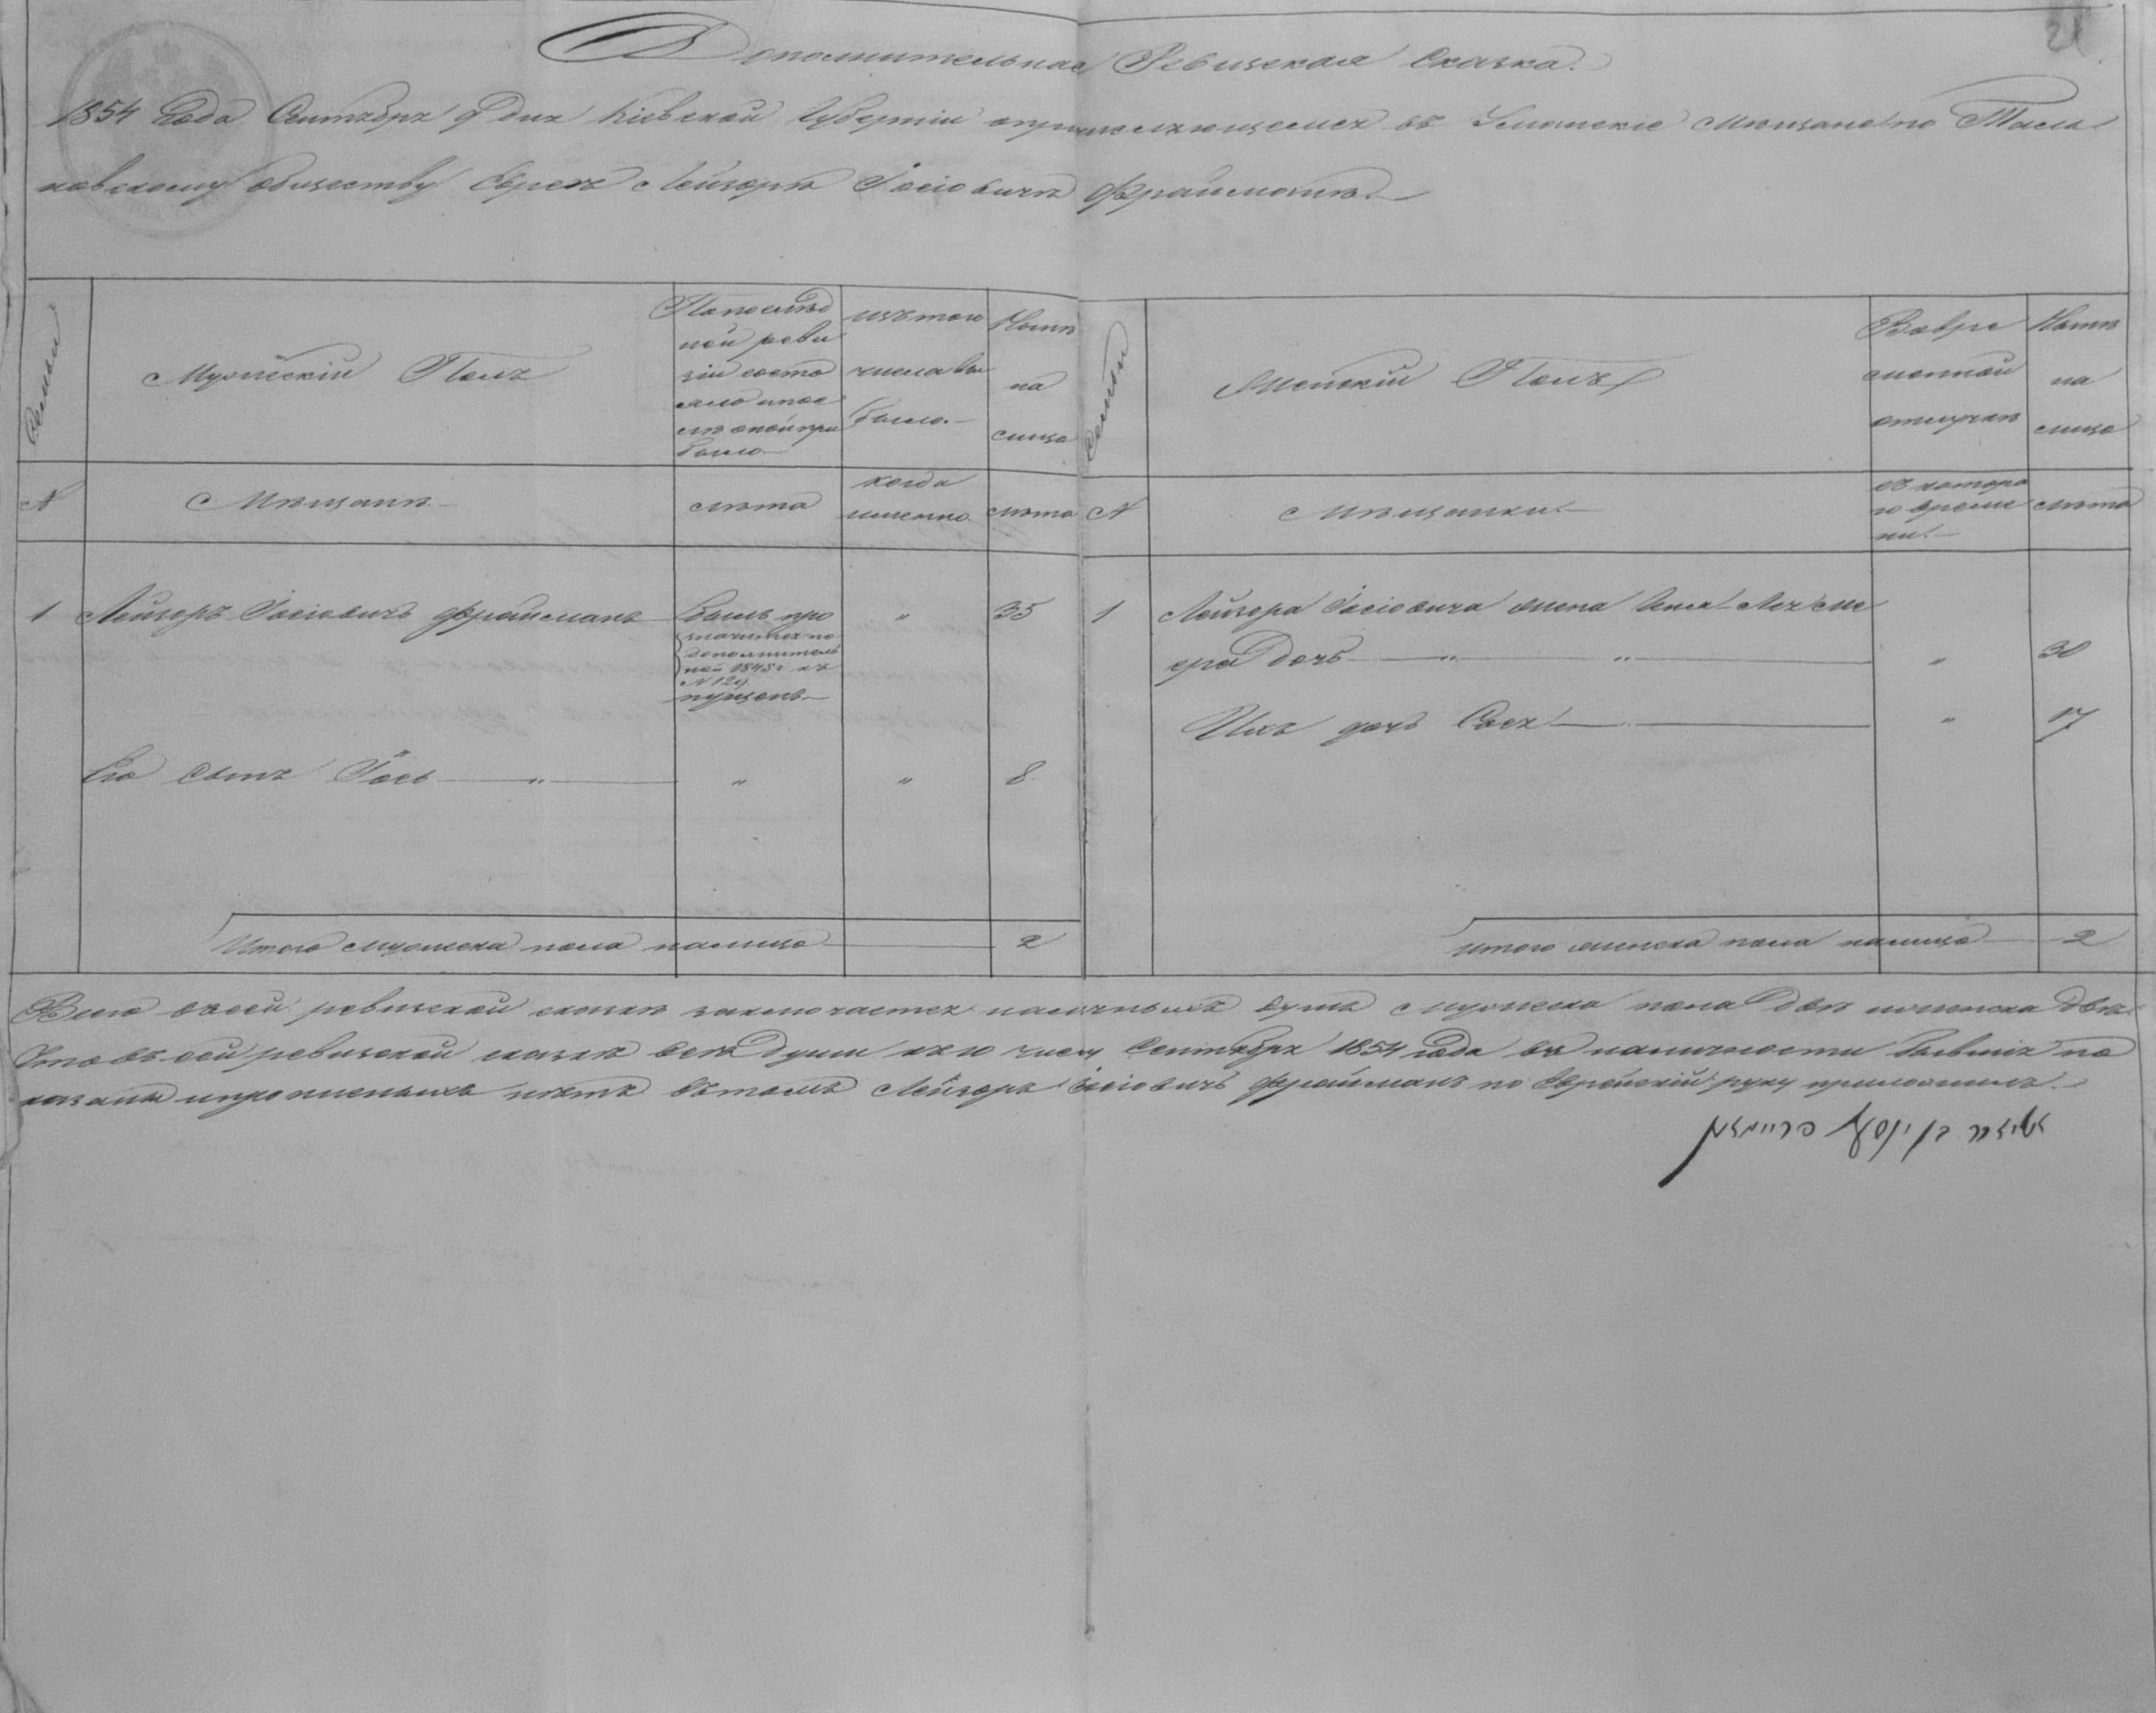 21
Дополнительная Ревизская Сказка.
1854 Года Сентября 9 дня Кіевской Губерніи о причисляющемся въ Уманскіе Мѣщане по Таль
новскому обществу Еврея Лейзоръ Іосіовичъ Фрайманъ.
Семьи
Мужескій Полъ
По послѣд
ной реви
зіи состо
яло и пос
лѣ оной при
было
изъ того
числа вы
было.
Нынѣ
на
лицо
Семьи
Женскій Полъ
Во вре
менной
отлучкѣ
Нынѣ
на
лицо
N
Мѣщане
лѣта
когда
именно
лѣта
N
Мѣщанки
съ которо
го време
ни.
лѣта
1 Лейзоръ Іосіовичъ Фрайманъ
Былъ про
значится по
дополнитель
ной 1848 г. къ
N 129
пущенъ
"
35
1 Лейзора Іосіовича жена
ера Дочь " "
"
30
Ихъ дочь Сося
"
17
Его Сынъ Іось "
"
"
8
Итого мужеска пола налицо 2
Итого женска пола налицо 2
Всего въ сей ревизской сказкѣ заключается наличныхъ душъ мужеска пола двѣ и женска двѣ
Что въ сей ревизской сказкѣ всѣ души къ 10 числу Сентября 1854 года въ наличности бывшія по
казаны и пропущеныхъ нѣтъ въ томъ Лейзоръ Іосіовичъ Фрайманъ по Еврейскій руку приложилъ.
ליזר בן יוסף פריימאן